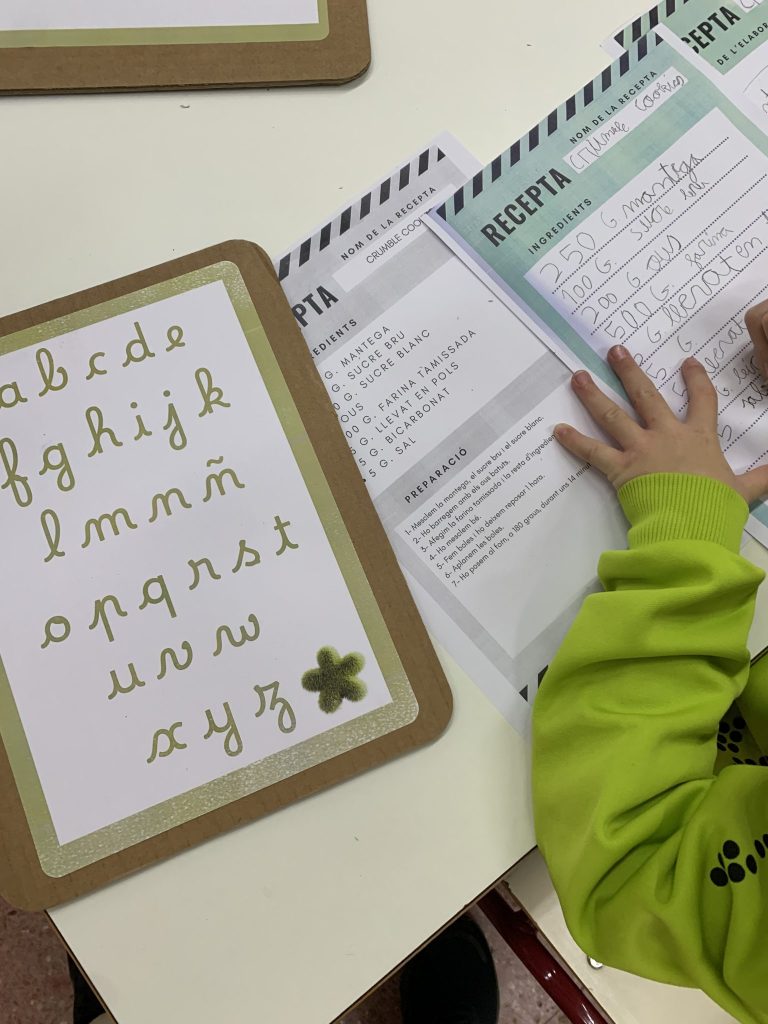 a b c d e
f g h i j k
l m n ñ
o p q r s t
u v w
x y z
NOM DE LA RECEPTA
CRUMBLE COO
PTA
REDIENTS
G. MANTEGA
G. SUCRE BRU
G. SUCRE BLANC
OUS
00 G. FARINA TAMISSADA
G. LLEVAT EN POLS
5 G. BICARBONAT
5 G. SAL
PREPARACIÓ
1- Mesclem la mantega, el sucre bru i el sucre blanc.
2- Ho barregem amb els ous batuts.
3- Afegim la farina tamissada i la resta d'ingredien
4- Ho mesclem bé.
5- Fem boles i ho deixem reposar 1 hora.
6- Aplanem les boles.
7- Ho posem al forn, a 180 graus, durant uns 14
RECEPTA
NOM DE LA RECEPTA
crumble cookies
INGREDIENTS
250 G mantega
100 G. sucre
200 G ous
500 G. farina
G llevat en
5 G
CEPTA
DE L'ELABOR